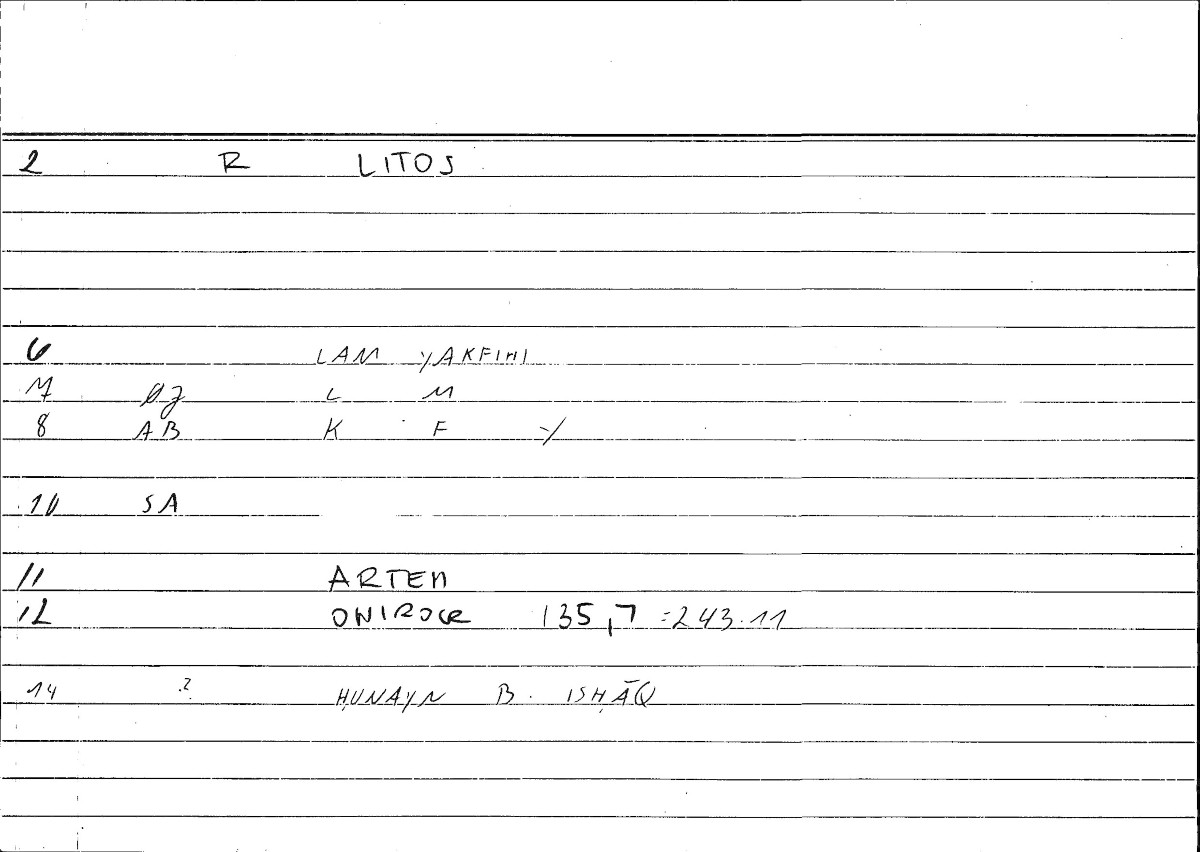 2 R LITOS
6 LAM YAKFIHI
7 L M
8 AB K F Y
10 SA
11 ARTEM
12 ONIROCR 135,7 = 243.11
14 ? ḤUNAYN B. ISḤĀQ